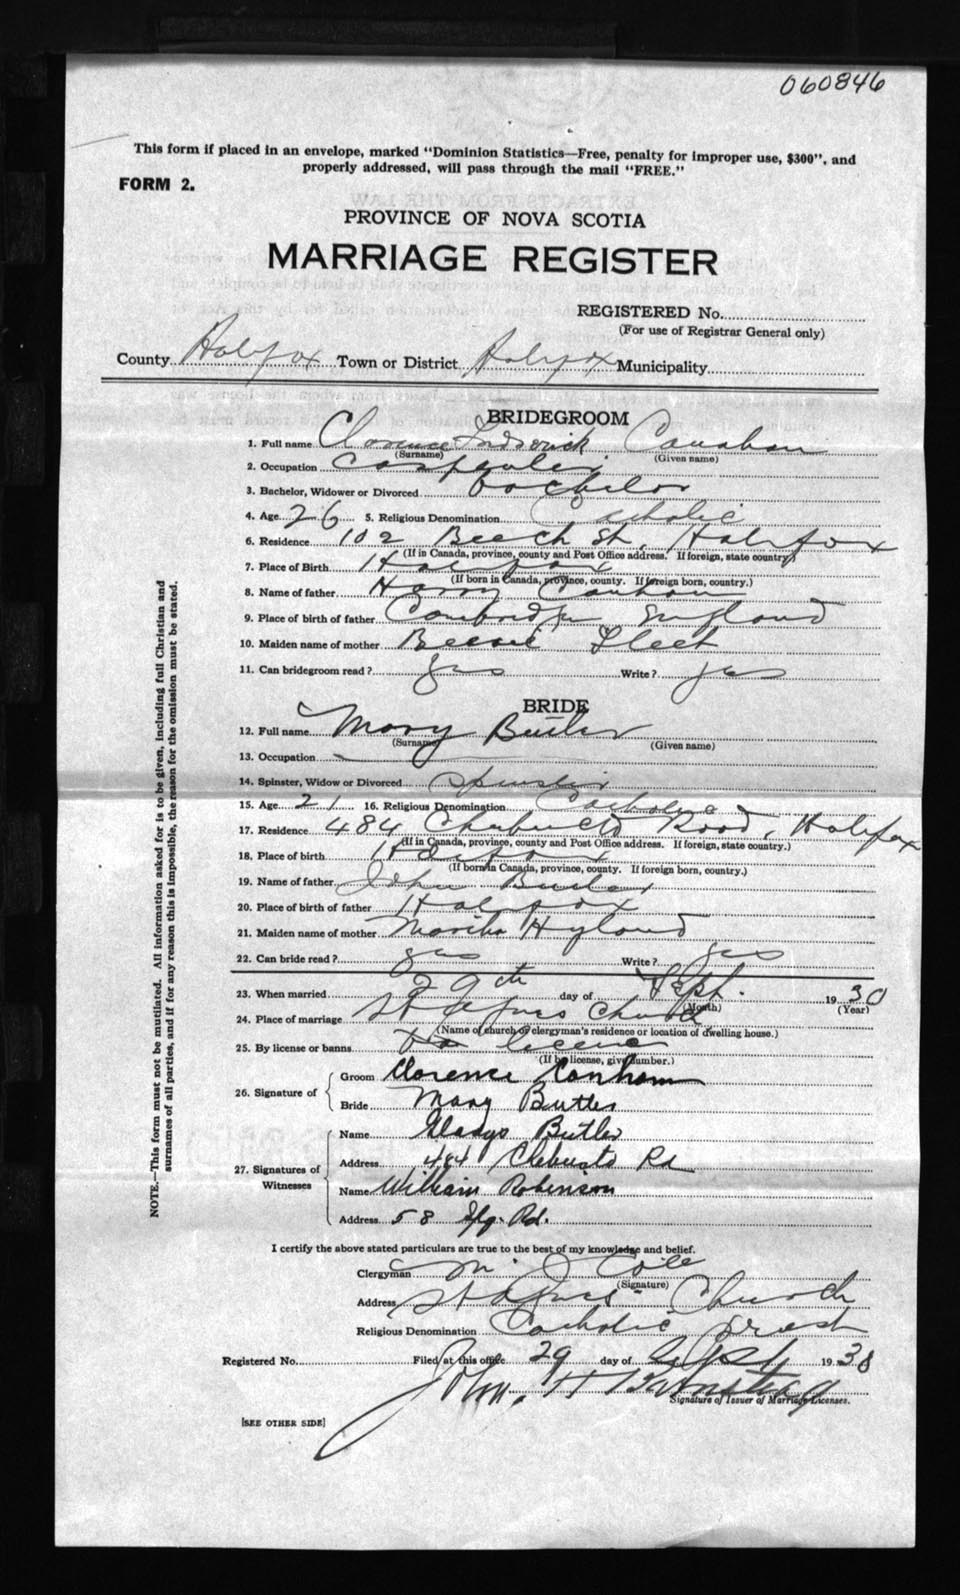 060846
This form if placed in an envelope, marked "Dominion Statistics—Free, penalty for improper use, $300", and
properly addressed, will pass through the mail "FREE."
FORM 2.
PROVINCE OF NOVA SCOTIA
MARRIAGE REGISTER
REGISTERED No.
(For use of Registrar General only)
County Halifax Town or District Halifax Municipality
BRIDEGROOM
1. Full name Clarence Frederick Canham
(Surname) (Given name)
2. Occupation Carpenter
3. Bachelor, Widower or Divorced bachelor
4. Age 26 5. Religious Denomination Catholic
6. Residence 102 Beech St, Halifax
(If in Canada, province, county and Post Office address. If foreign, state country.)
7. Place of Birth Halifax
(If born in Canada, province, county. If foreign born, country.)
8. Name of father Harry Canham
9. Place of birth of father Cambridge England
10. Maiden name of mother Bessie Fleet
11. Can bridegroom read? yes Write? yes
BRIDE
12. Full name Mary Butler
(Surname) (Given name)
13. Occupation
14. Spinster, Widow or Divorced Spinster
15. Age 21 16. Religious Denomination Catholic
17. Residence 484 Chebucto Road, Halifax
(If in Canada, province, county and Post Office address. If foreign, state country.)
18. Place of birth Halifax
(If born in Canada, province, county. If foreign born, country.)
19. Name of father John Butler
20. Place of birth of father Halifax
21. Maiden name of mother Martha Hyland
22. Can bride read? yes Write? yes
23. When married 29th day of Sept. 1930
(Month) (Year)
24. Place of marriage St Agnes Church
(Name of church or clergyman's residence or location of dwelling house.)
25. By license or banns license
(If by license, give number.)
26. Signature of
Groom Clarence Canham
Bride Mary Butler
27. Signatures of Witnesses
Name Gladys Butler
Address 484 Chebucto Rd
Name William Robinson
Address 58 Rd.
I certify the above stated particulars are true to the best of my knowledge and belief.
Clergyman M. J. Cole
(Signature)
Address St Agnes Church
Religious Denomination Catholic priest
Registered No. Filed at this office 29 day of Sept 1930
John H
Signature of Issuer of Marriage Licenses.
[SEE OTHER SIDE]
NOTE.—This form must not be mutilated. All information asked for is to be given, including full Christian and
surnames of all parties, and if for any reason this is impossible, the reason for the omission must be stated.